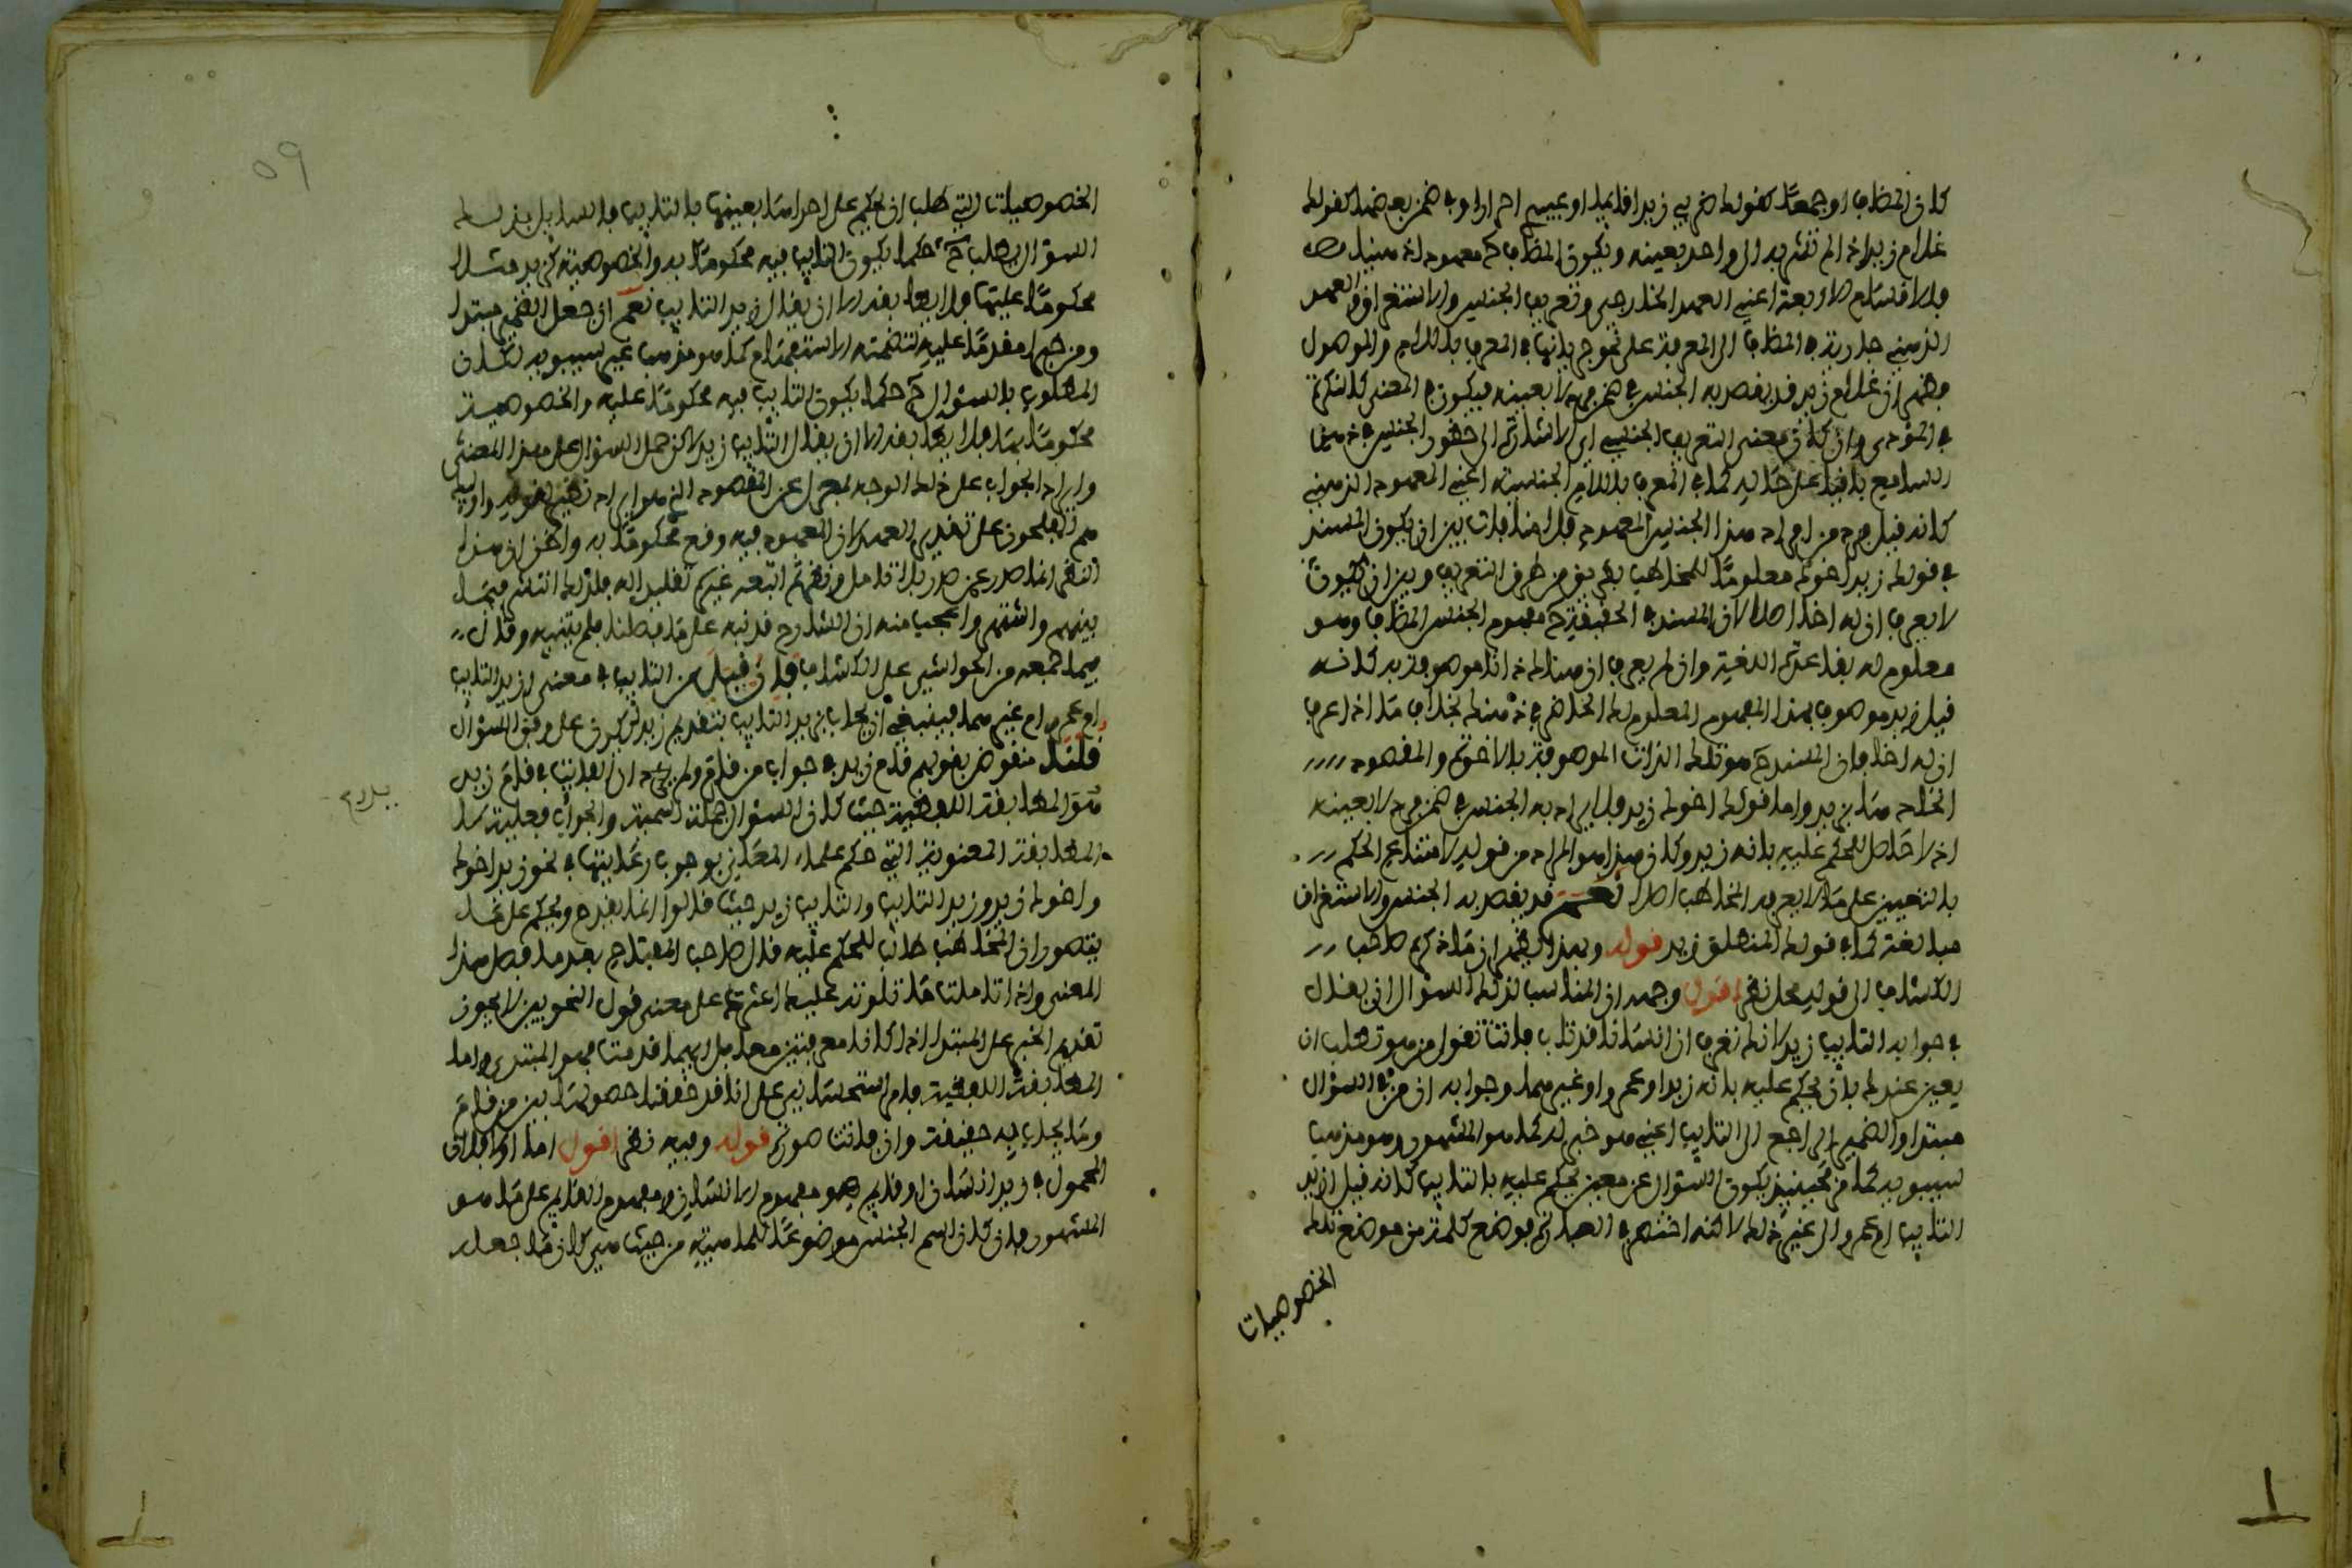 كان المضاف او جمعا كقولك ضربي زيدا قائما او عبيدي احرارا وفي ضمن بعضها كقولك
غلام زيد اذا لم تشر به الى واحد بعينه ويكون المضاف ح معهودا ذهنيا
فالاقسام الاربعة اعني العهد الخارجي وتعريف الجنس والاستغراق والعهد
الذهني جارية في المضاف الى المعرفة على نحو جريانها في المعرف باللام والموصول
فظهر ان غلام زيد قد يقصد به الجنس في ضمن فرد لا بعينه فيكون في المعنى كالنكرة
في المؤدى وان كان معنى التعريف الجنسي اي الاشارة الى حضور الجنس في ذهن
السامع باقيا على حاله كما في المعرف باللام الجنسية اعني المعهود الذهني
كانه قيل فرد من افراد هذا الجنس المعهود فلا منافاة بين ان يكون المسند
في قولك زيد اخوك معلوما للمخاطب بطريق من طرق التعريف وبين ان يكون
لا يعرف ان له اخا اصلا لان المسند في الحقيقة ح مفهوم الجنس المضاف وهو
معلوم له بقاعدة اللغة وان لم يعرف ان هناك ذاتا موصوفة به كانه
قيل زيد موصوف بهذا المفهوم المعلوم لك الحاضر في ذهنك بخلاف ما اذا عرف
ان له اخا فان المسند ح هو تلك الذات الموصوفة بالاخوة والمقصود
اتحادها بزيد واما قولك اخوك زيد فلا يراد به الجنس في ضمن فرد لا بعينه
اذ لا حاصل للحكم عليه بانه زيد وكان هذا هو المراد من قوله لامتناع الحكم
بالتعيين على ما لا يعرفه المخاطب اصلا نعم قد يقصد به الجنس والاستغراق
مبالغة كما في قولك المنطلق زيد قوله وبهذا يظهر ان ما ذكره صاحب
الكشاف الى قوله محل نظر اقول وجهه ان المناسب لذلك السؤال ان يقال
في جوابه التائب زيد لانك تعرف ان انسانا قد تاب فانت تقول من هو تطلب ان
يعين عندك بان يحكم عليه بانه زيد او عمرو او غيرهما وجوابه ان من في السؤال
مبتدا والضمير الراجع الى التائب اعني هو خبر له كما هو المشهور وهو مذهب
سيبويه كما فحينئذ يكون السؤال عن معين يحكم عليه بالتائب كانه قيل ازيد
التائب ام عمرو الى غير ذلك لاكنه اختصر في العبارة بوضع كلمة من موضع تلك
الخصوصيات
09
الخصوصيات التي طلب ان يحكم على احداها بعينها بالتائب فالسائل بذلك
السؤال يطلب ح حكما يكون التائب فيه محكوما به والخصوصية كزيد مثلا
محكوما عليها فلا يطابقه الا ان يقال زيد التائب نعم ان جعل الضمير مبتدا
ومن خبرا مقدما عليه لتضمنه الاستفهام كما هو مذهب غير سيبويه كان
المطلوب بالسؤال ح حكما يكون التائب فيه محكوما عليه والخصوصية
محكوما بها فلا يطابقه الا ان يقال التائب زيد لاكن حمل السؤال على هذا المعنى
وايراد الجواب على ذلك الوجه بمعزل عن المقصود الذي هو ايراد نظير لقوله واولئك
هم المفلحون على تقدير العهد لان المعهود فيه وقع محكوما به والحق ان هذا
النظر انما صدر عمن صدر بلا تامل ونظر ثم اتبعه غيره تقليدا له فلذلك انتشر فيما
بينهم واشتهر واعجب منه ان الشارح قد نبه على ما فصلناه فلم يتنبه وقال
فيما جمعه من الحواشي على الكشاف فان قيل من التائب في معنى ازيد التائب
ام عمرو ام غيرهما فينبغي ان يجاب بزيد التائب بتقديم زيد ليكون على وفق السؤال
قلنا منقوض بقولهم قام زيد في جواب من قام ولم يرد ان يقال في قام زيد
فتوا المطابقة اللفظية حيث كان السؤال جملة اسمية والجواب فعلية لا
المطابقة المعنوية التي حكم علماء المعاني بوجوب رعايتها في نحو زيد اخوك
واخوك زيد وزيد التائب والتائب زيد حيث قالوا انما يقدم ويحكم على ما
يتصور ان المخاطب طالب للحكم عليه قال صاحب المفتاح بعد ما فصل هذا
المعنى واذا تاملت ما تلوته عليك اعثرك على معنى قول النحويين لا يجوز
تقديم الخبر على المبتدا اذا كانا معرفتين معا بل ايهما قدمت فهو المبتدى واما
المطابقة اللفظية فامر استحساني على انا قد حققنا حصولها بين من قام
وما يجاب به حقيقة وان فاتت صورة قوله وفيه نظر اقول اما اولا فلان
المحمول في زيد انسان او قائم هو مفهوم الانسان ومفهوم القائم على ما هو
المشهور فان كان اسم الجنس موضوعا للماهية من حيث هي كان ما جعله